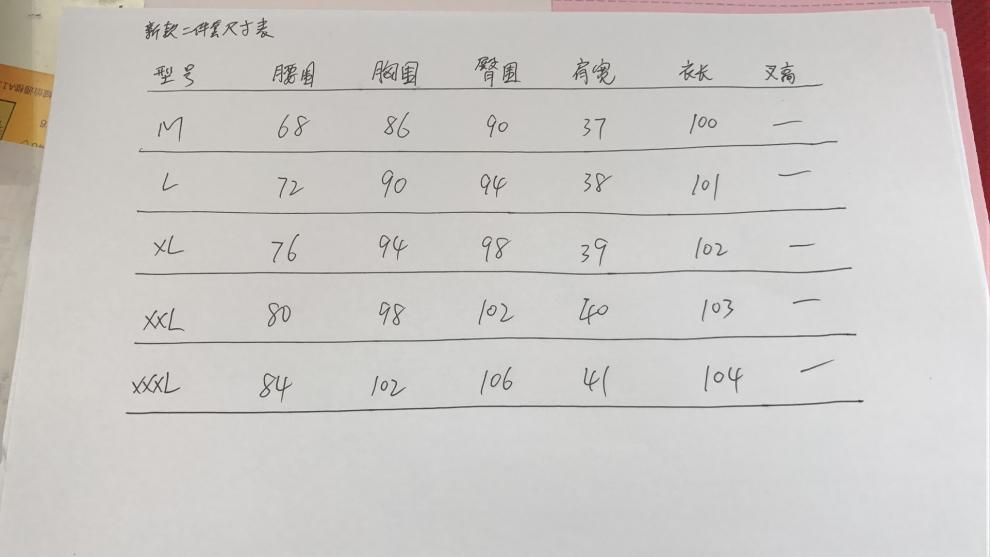 新款二件套尺寸表
型号 腰围 胸围 臀围 肩宽 衣长 叉高
M 68 86 90 37 100 —
L 72 90 94 38 101 —
XL 76 94 98 39 102 —
XXL 80 98 102 40 103 —
XXXL 84 102 106 41 104 —